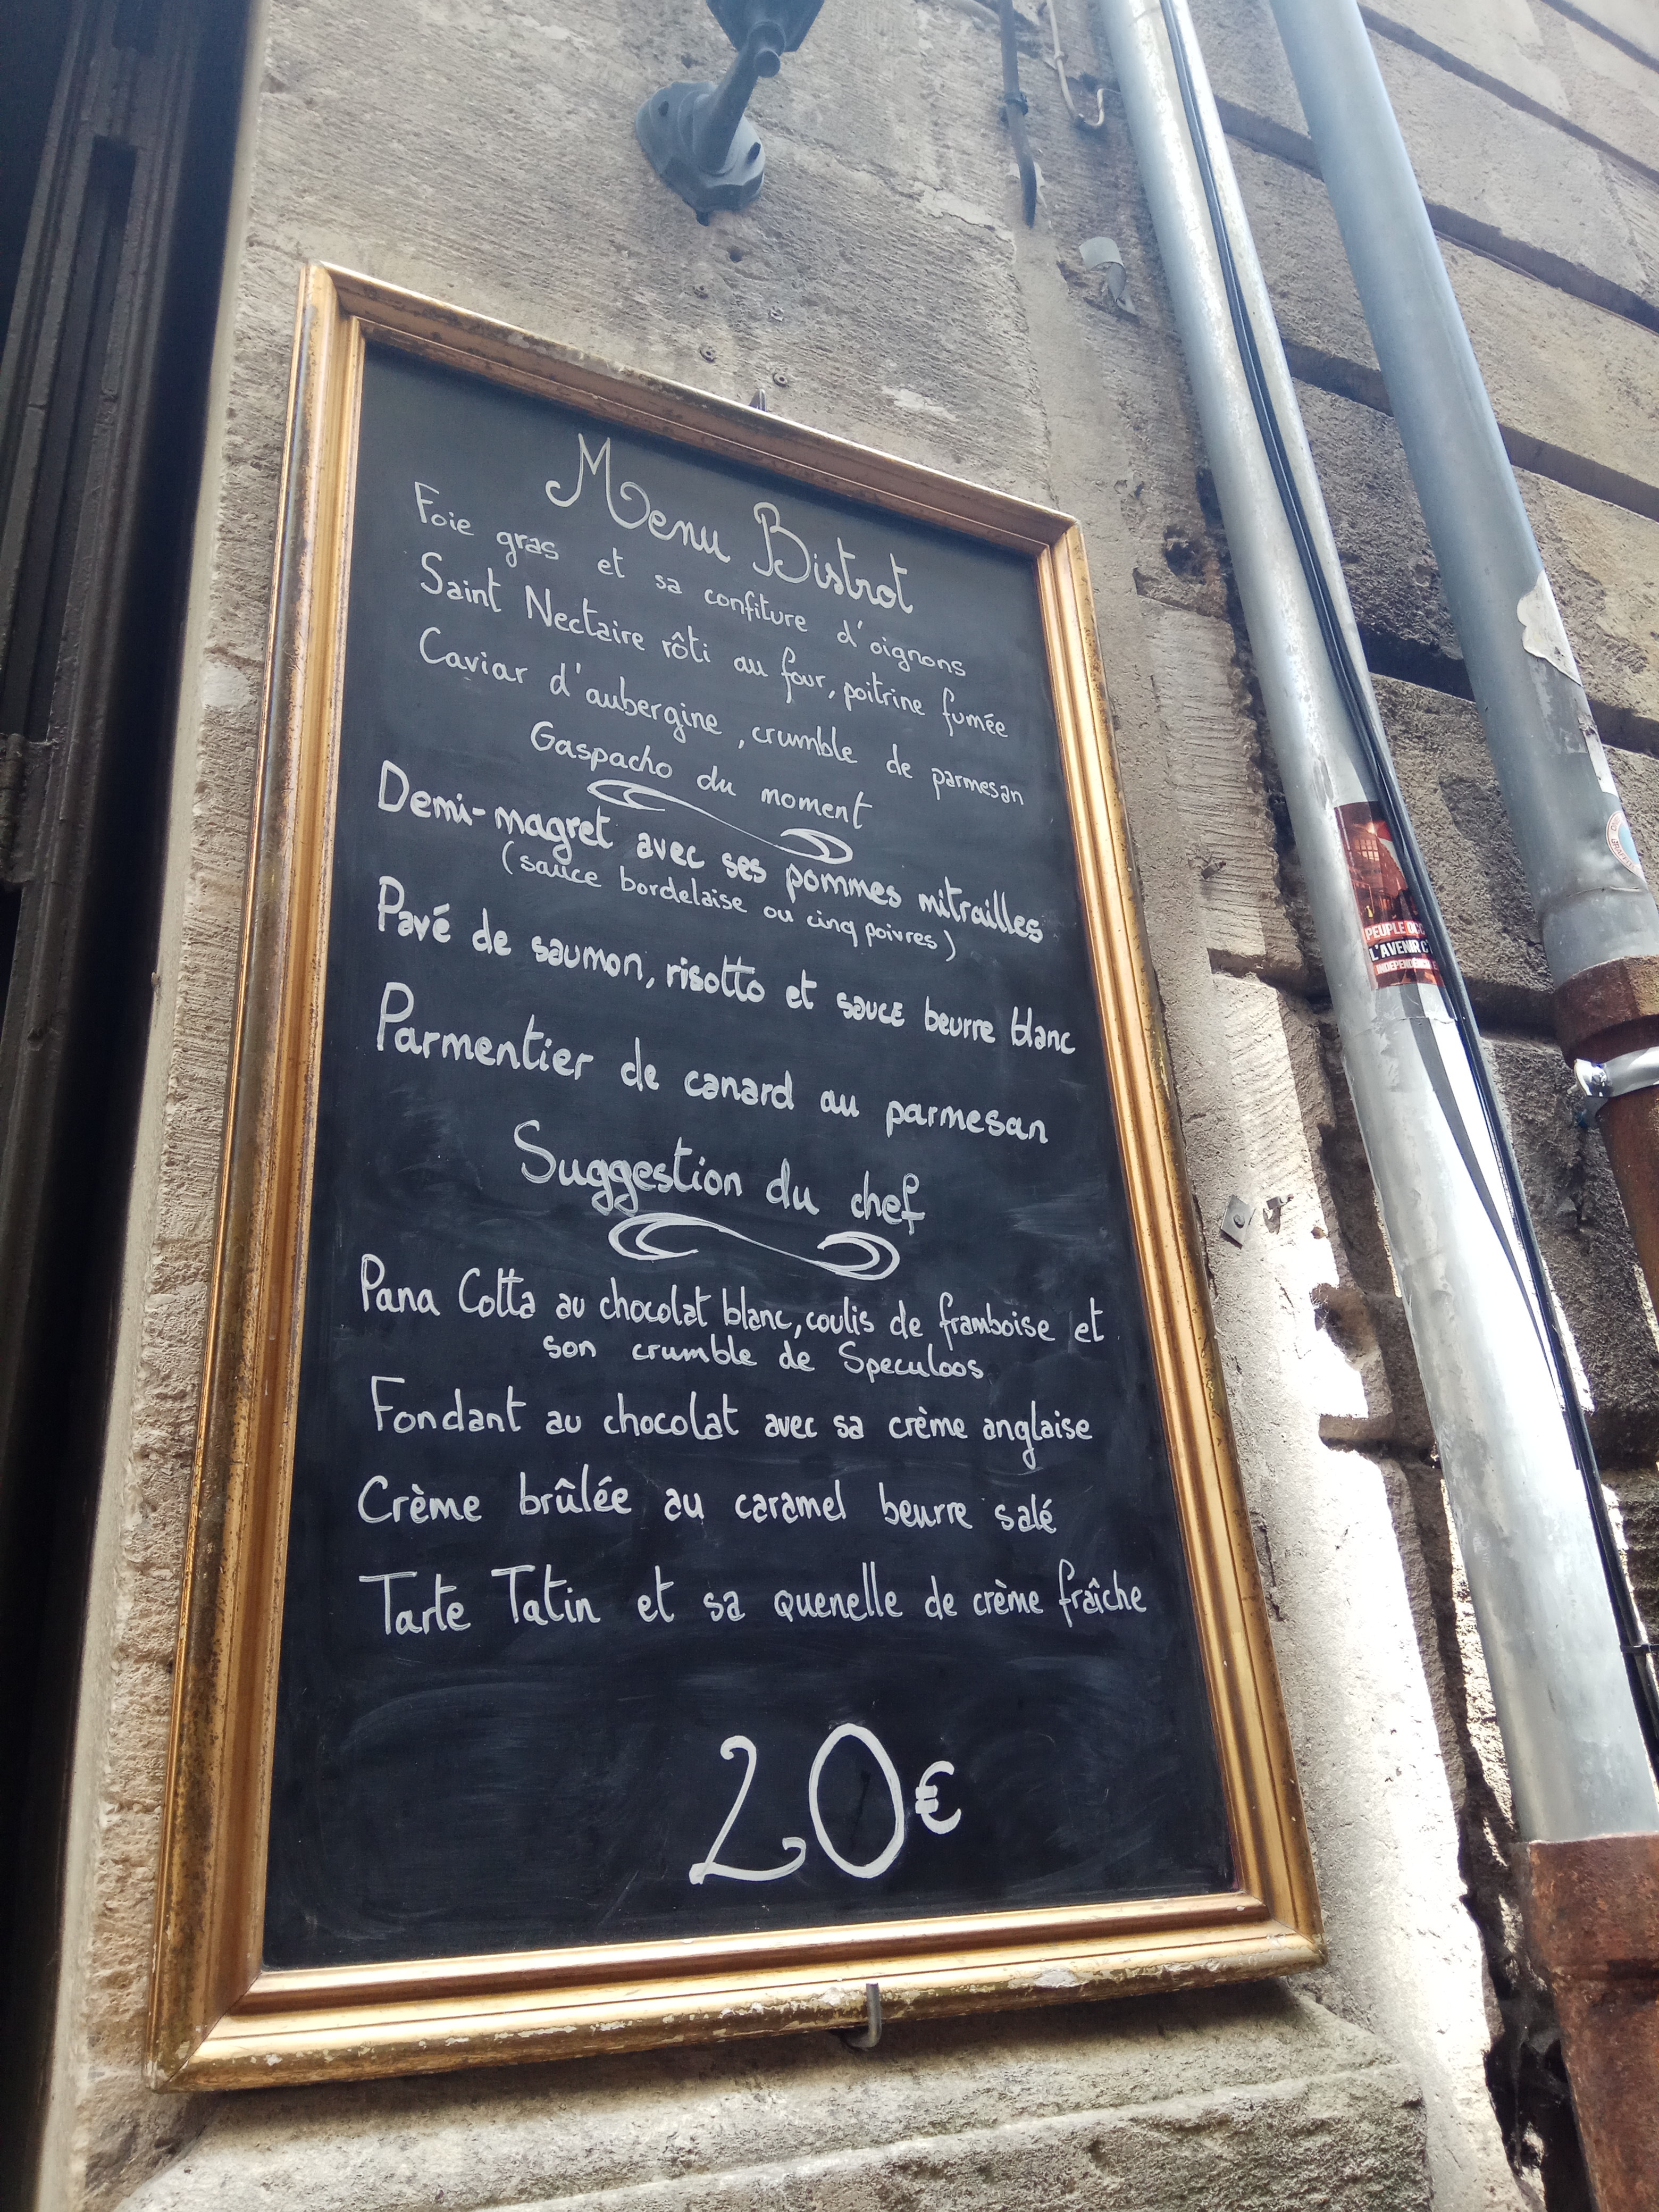 Menu Bistrot
Foie gras et sa confiture d'oignons
Saint Nectaire rôti au four, poitrine fumée
Caviar d'aubergine, crumble de parmesan
Gaspacho du moment
Demi-magret avec ses pommes mitrailles
(sauce bordelaise ou cinq poivres)
Pavé de saumon, risotto et sauce beurre blanc
Parmentier de canard au parmesan
Suggestion du chef
Pana Cotta au chocolat blanc, coulis de framboise et
son crumble de Speculoos
Fondant au chocolat avec sa crème anglaise
Crème brûlée au caramel beurre salé
Tarte Tatin et sa quenelle de crème fraîche
20€
PEUPLE
L'AVENIR